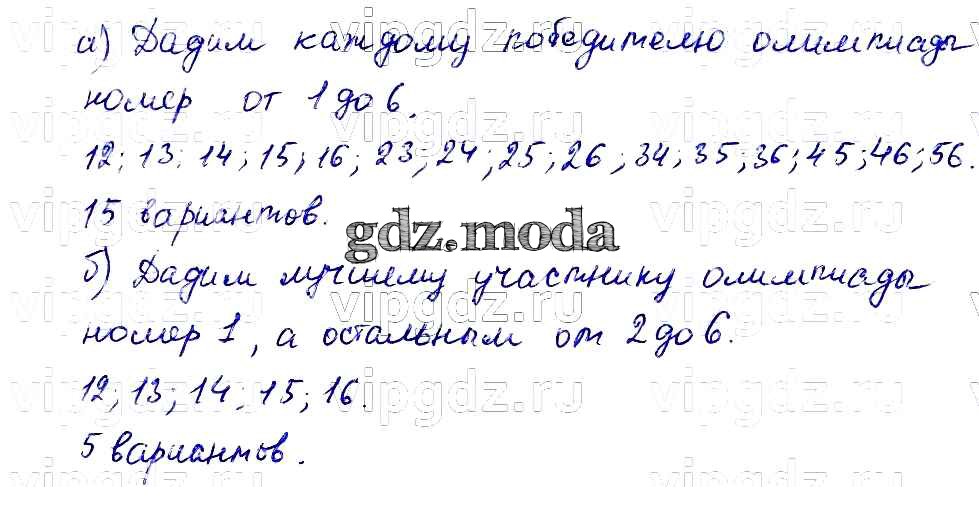 а) Дадим каждому победителю олимпиады
номер от 1 до 6.
12; 13; 14; 15; 16; 23; 24; 25; 26; 34; 35; 36; 45; 46; 56.
15 вариантов.
gdz.moda
б) Дадим лучшему участнику олимпиады
номер 1, а остальным от 2 до 6.
12; 13; 14; 15; 16.
5 вариантов.
vipgdz.ru